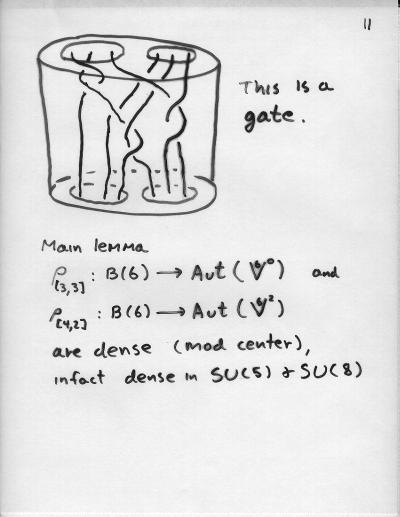 11
This is a
gate.
Main lemma
ρ[3,3] : B(6) → Aut (V⁰) and
ρ[4,2] : B(6) → Aut (V²)
are dense (mod center),
infact dense in SU(5) & SU(8)